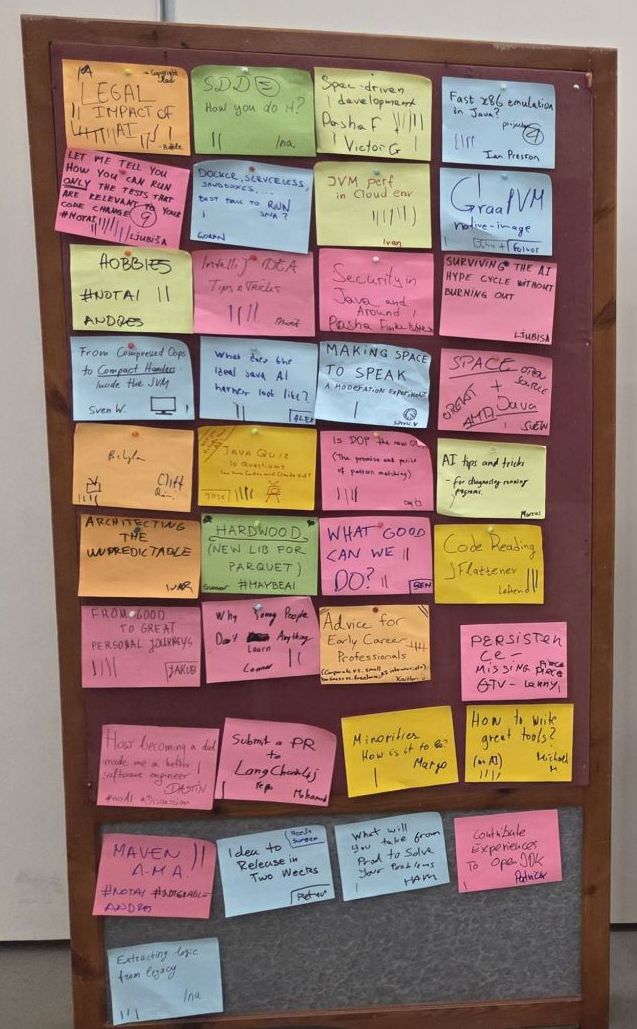 Copyright
LEGAL
IMPACT OF
AI
SDD
How you do it?
Ina
Spec-driven
development
Pasha F
Victor G
Fast x86 emulation
in Java?
projector
Ian Preston
LET ME TELL YOU
HOW YOU CAN RUN
ONLY THE TESTS THAT
ARE RELEVANT TO YOUR
CODE CHANGE
9
#NOTAI LJUBISA
DOCKER, SERVERLESS,
SANDBOXES, ...
BEST TALK TO RUN
JAVA?
GORAN
JVM perf
in Cloud env
Ivan
GraalVM
native-image
HOBBIES
#NOTAI
ANDRES
IntelliJ IDEA
Tips & Tricks
Security in
Java and
Around
Pasha Finkelshteyn
SURVIVING THE AI
HYPE CYCLE WITHOUT
BURNING OUT
LJUBISA
From Compressed Oops
to Compact Headers
Inside the JVM
Sven W.
What does the
ideal Java AI
harness look like?
ALEX
MAKING SPACE
TO SPEAK
A MODERATION EXPERIMENT
SPACE OPEN
SOURCE
GREAT + Java
AMA
SVEN
Cliff
JAVA QUIZ
10 Questions
JOSE
IS DOP the new OO
(The promise and perils
of pattern matching)
AI tips and tricks
- for diagnosing running
programs.
Marcus
ARCHITECTING
THE
UNPREDICTABLE
IVAR
HARDWOOD
(NEW LIB FOR
PARQUET)
Gunnar #MAYBEAI
WHAT GOOD
CAN WE
DO?
BEN
Code Reading
JFlattener
Lefteris
FROM GOOD
TO GREAT
PERSONAL JOURNEYS
JAKUB
Why Young People
Don't Learn Anything
Advice for
Early Career
Professionals
(Corporate vs. small
business vs. freelance, vs internship, etc)
Kaitlyn
PERSISTEN
CE -
MISSING PIECE
GTV - Lenny
How becoming a dad
made me a better
software engineer
DASTIN
#noAI #Discussion
Submit a PR
to
LangChain4j
repo
Mohamed
Minorities
How is it to be?
Margo
How to write
great tools?
(no AI)
Michael
M
MAVEN
A.M.A.
#NOTAI
ANDRES
Needs
Screen
Idea to
Release in
Two Weeks
What will
you take from
Prod to Solve
Your Problems
Contribute
Experiences
To OpenJDK
Patricio
Extracting logic
from legacy
Ina